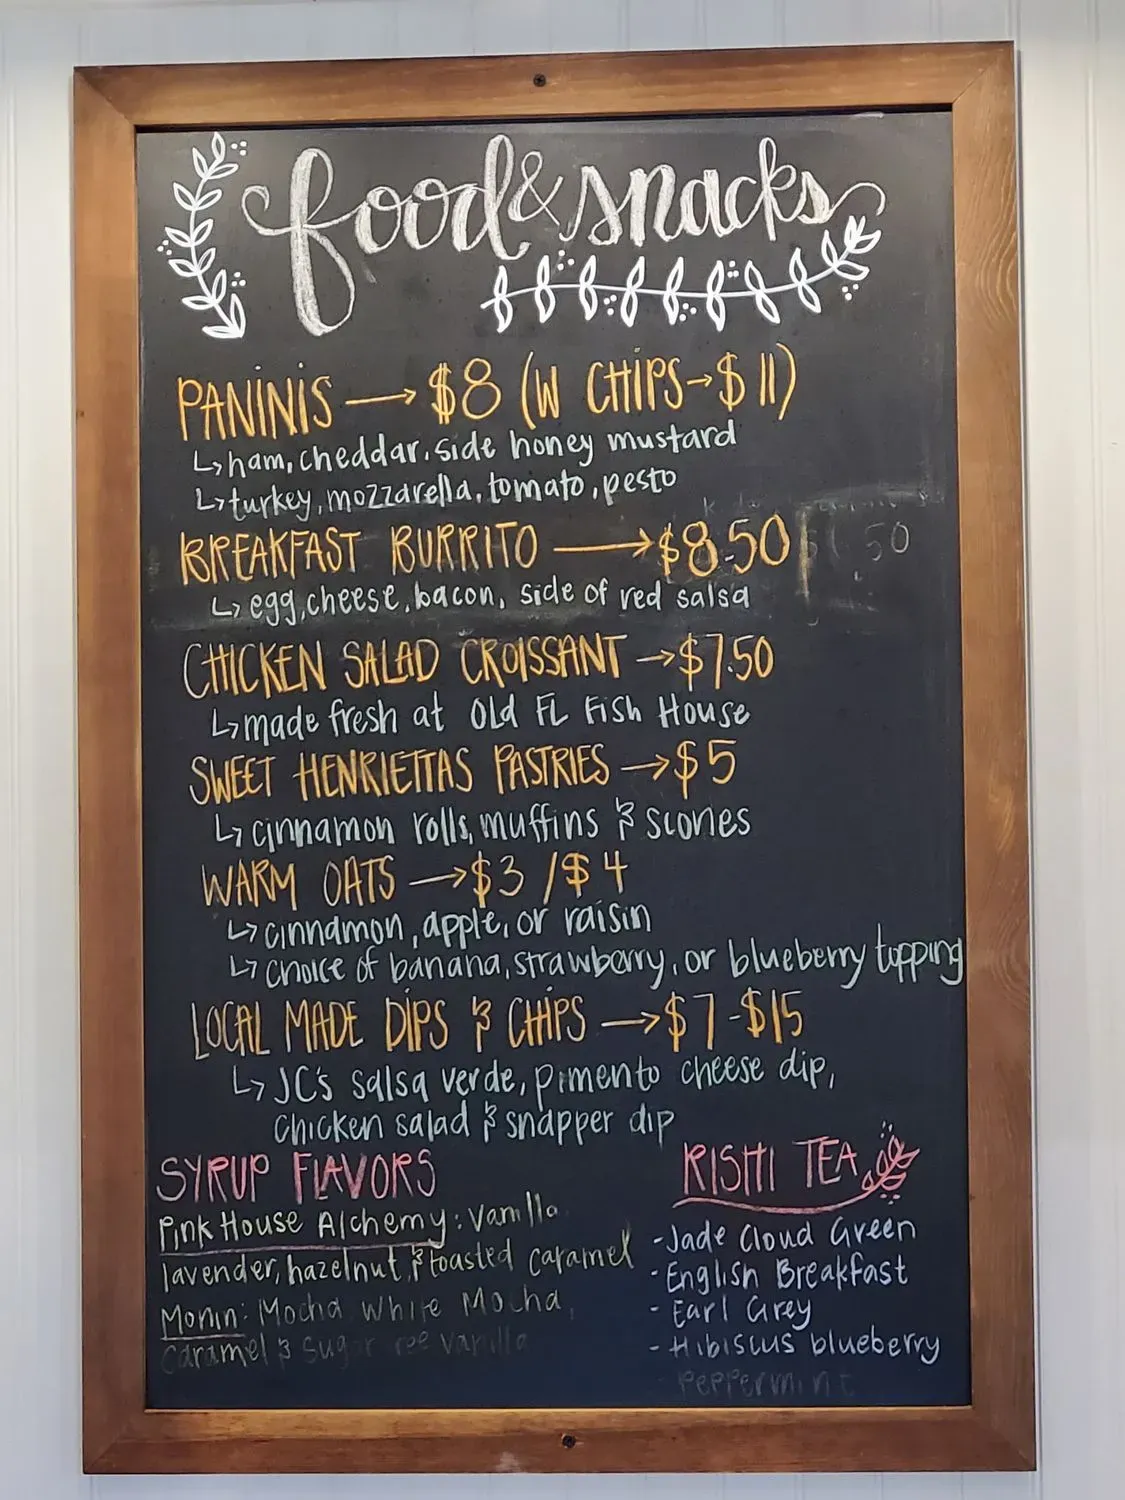 food & snacks
PANINIS → $8 (W CHIPS → $11)
↳ ham, cheddar, side honey mustard
↳ turkey, mozzarella, tomato, pesto
BREAKFAST BURRITO → $8.50
↳ egg, cheese, bacon, side of red salsa
CHICKEN SALAD CROISSANT → $7.50
↳ made fresh at Old FL Fish House
SWEET HENRIETTAS PASTRIES → $5
↳ cinnamon rolls, muffins & scones
WARM OATS → $3 / $4
↳ cinnamon, apple, or raisin
↳ choice of banana, strawberry, or blueberry topping
LOCAL MADE DIPS & CHIPS → $7 - $15
↳ JC's salsa verde, pimento cheese dip,
chicken salad & snapper dip
SYRUP FLAVORS
Pink House Alchemy: Vanilla
lavender, hazelnut & toasted caramel
Monin: Mocha White Mocha,
Caramel & Sugar ree Vanilla
RISHI TEA
- Jade Cloud Green
- English Breakfast
- Earl Grey
- Hibiscus blueberry
- Peppermint